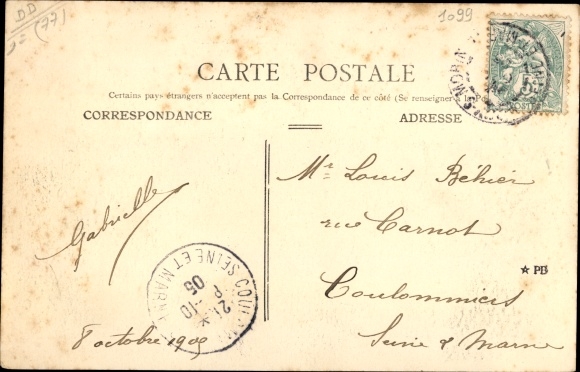 DD
(77)
1099
CARTE POSTALE
Certains pays étrangers n'acceptent pas la Correspondance de ce côté (Se renseigner à la
CORRESPONDANCE
ADRESSE
Mr Louis Béhier
rue Carnot
Coulommiers
Seine & Marne
Gabrielle
8 octobre 1905
SEINE ET MARNE
05
★ PB